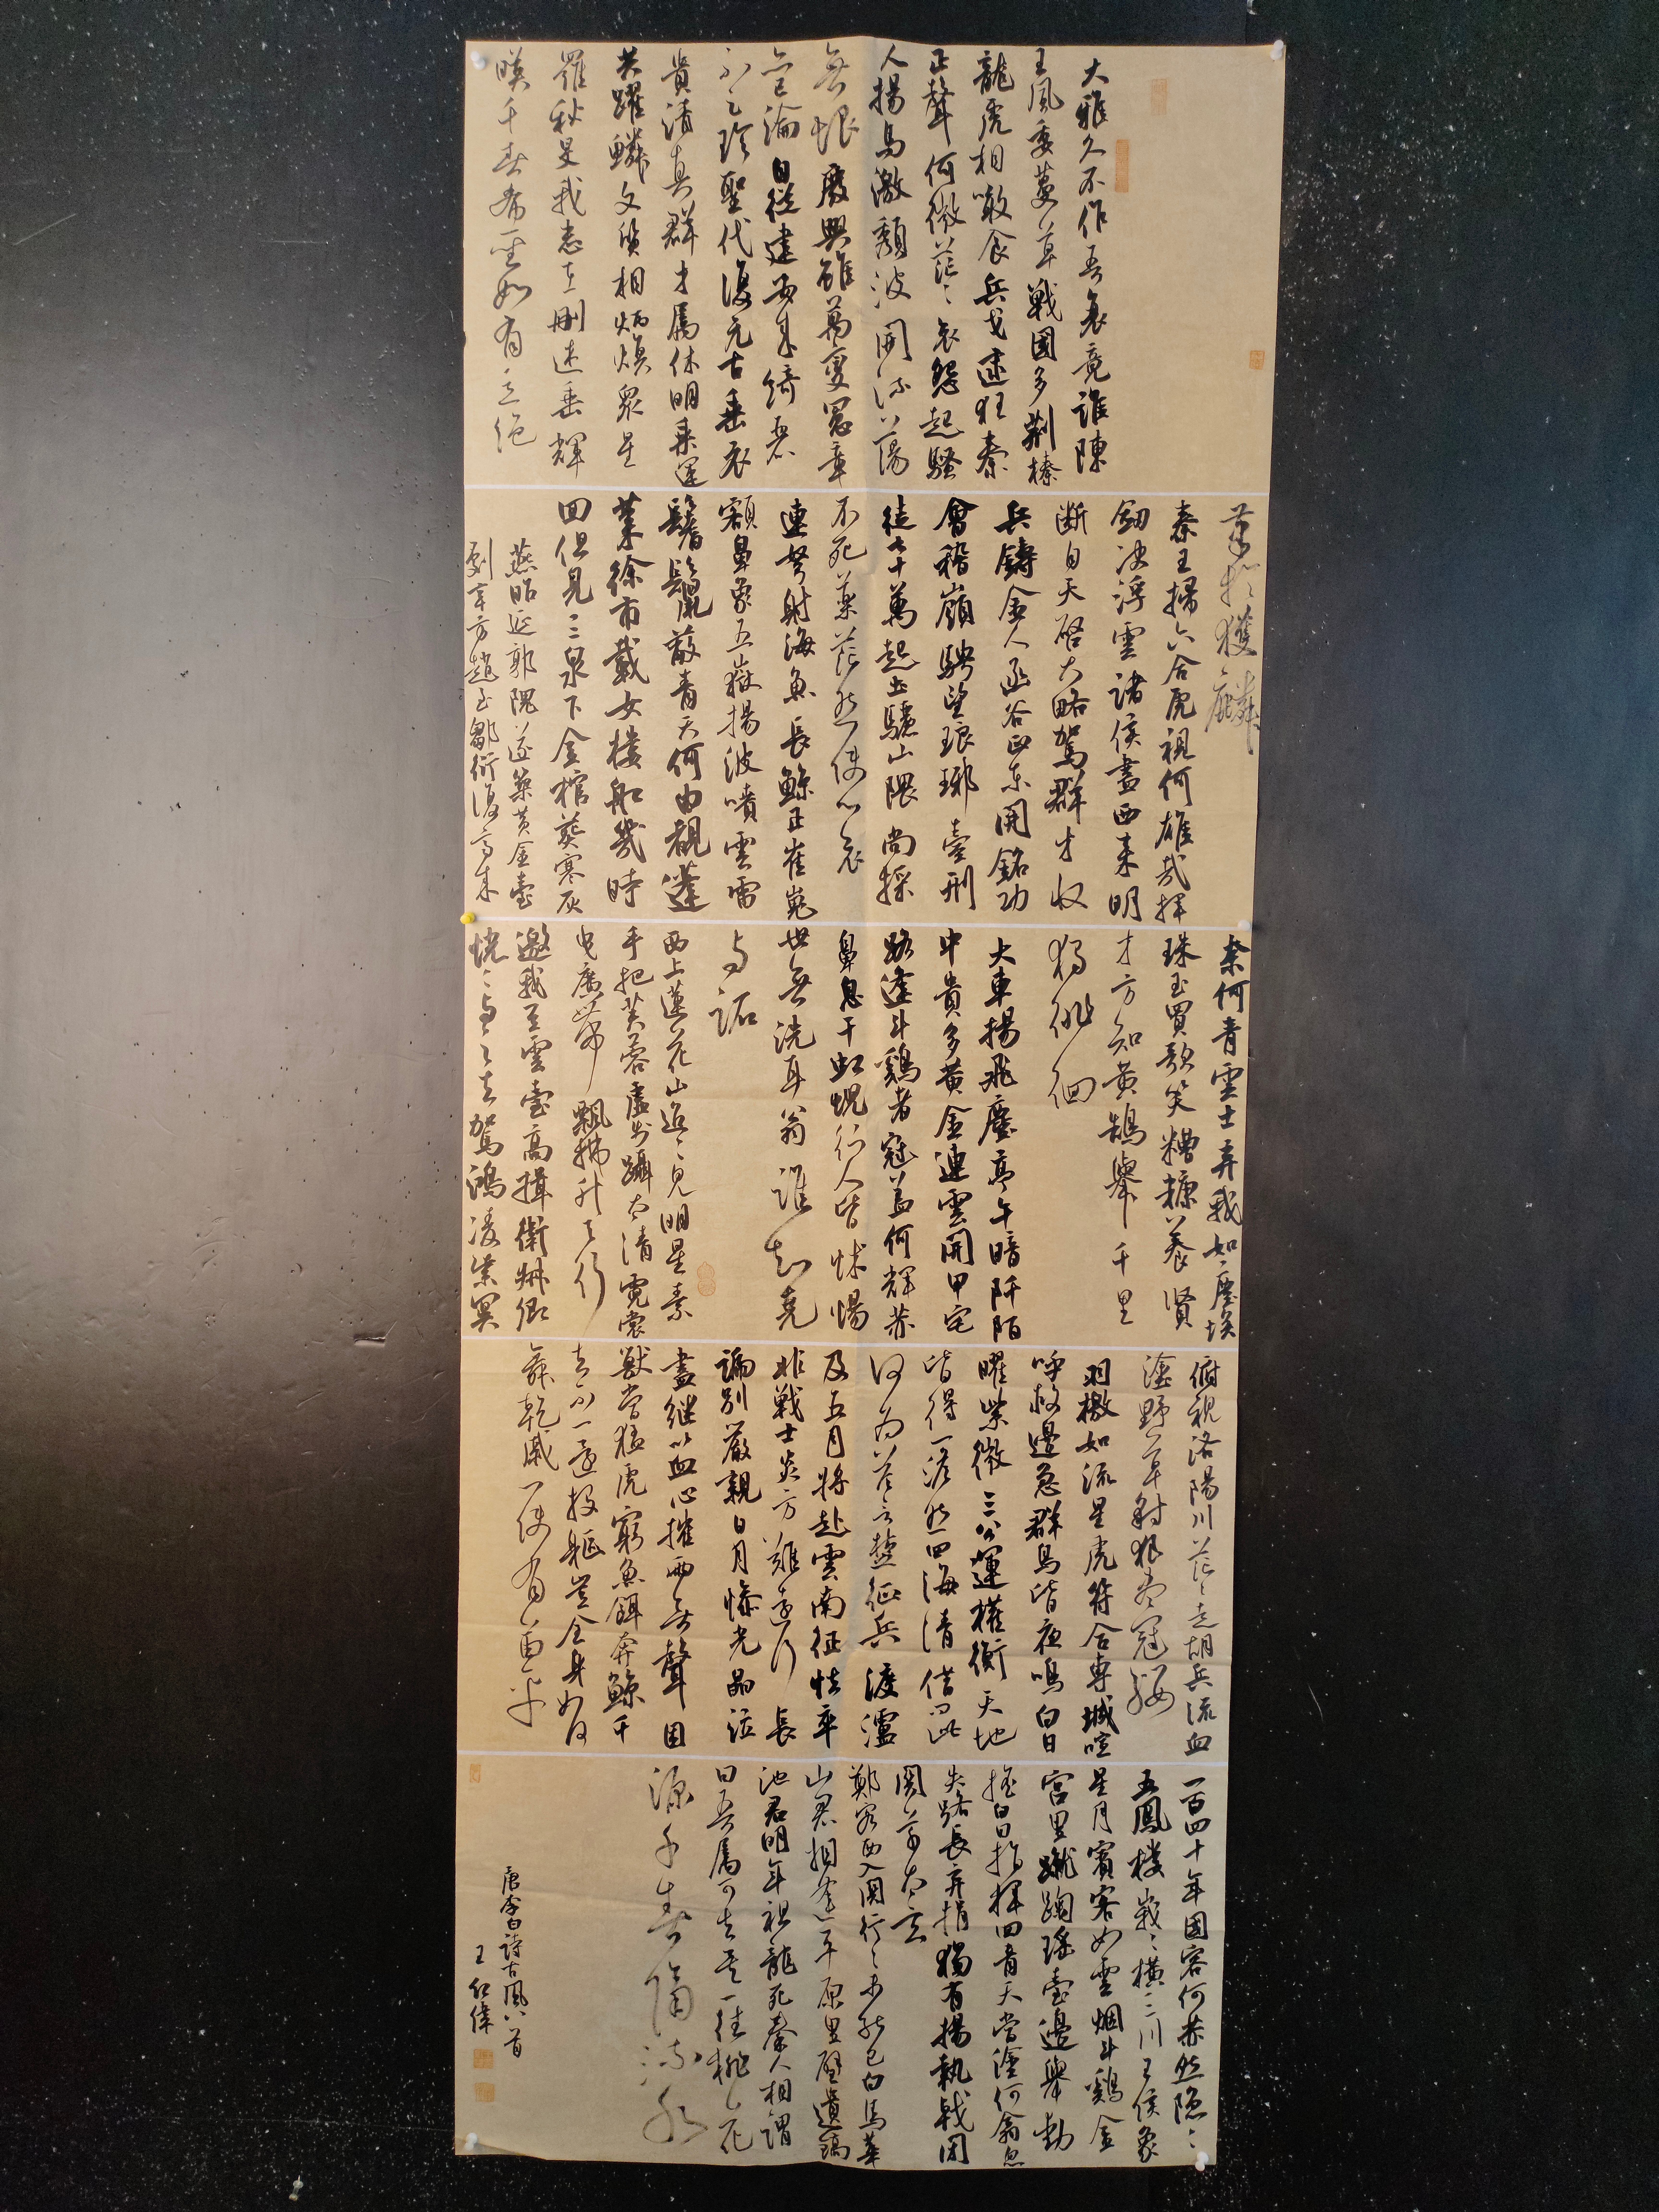 大雅久不作吾衰竟誰陳
王風委蔓草戰國多荆榛
龍虎相啖食兵戈逮狂秦
正聲何微茫哀怨起騷
人揚馬激頹波開流蕩
無垠廢興雖萬變憲章
亦已淪自從建安來綺麗
不足珍聖代復元古垂衣
貴清真群才屬休明乘運
共躍鱗文質相炳煥眾星
羅秋旻我志在刪述垂輝
暎千春希聖如有立絕
筆於獲麟
秦王掃六合虎視何雄哉揮
劍決浮雲諸侯盡西來明
斷自天啓大略駕群才收
兵鑄金人函谷正東開銘功
會稽嶺騁望琅琊臺刑
徒七十萬起土驪山隈尚採
不死藥茫然使心哀
連弩射海魚長鯨正崔嵬
額鼻象五嶽揚波噴雲雷
鬐鬣蔽青天何由覩蓬
萊徐市載女樓船幾時
回但見三泉下金棺葬寒灰
燕昭延郭隗遂築黃金臺
劇辛方趙至鄒衍復齊來
奈何青雲士弃我如塵埃
珠玉買歌笑糟糠養賢
才方知黃鵠舉千里
獨徘徊
大車揚飛塵亭午暗阡陌
中貴多黃金連雲開甲宅
路逢斗鷄者冠蓋何輝赫
鼻息干虹蜺行人皆怵惕
世無洗耳翁誰知堯
與跖
西上蓮花山迢迢見明星素
手把芙蓉虛步躡太清霓裳
曳廣帶飄拂升天行
邀我至雲臺高揖衛叔卿
恍恍與之去駕鴻凌紫冥
俯視洛陽川茫茫走胡兵流血
塗野草豺狼盡冠纓
羽檄如流星虎符合專城喧
呼救邊急群鳥皆夜鳴白日
曜紫微三公運權衡天地
皆得一澹然四海清借問此
何為答言楚征兵渡瀘
及五月將赴雲南征怯卒
非戰士炎方難遠行長
號別嚴親日月慘光晶泣
盡繼以血心摧兩無聲困
獸當猛虎窮魚餌奔鯨千
去不一還投軀豈全身如何
舞乾戚一使有苗平
一百四十年國容何赫然隱隱
五鳳樓峩峩橫三川王侯象
星月賓客如雲烟斗鷄金
宮里蹴鞠瑤臺邊舉動
搖白日指揮回青天當塗何翕忽
失路長弃捐獨有揚執戟閉
關草太玄
鄭客西入關行行未能已白馬華
山君相逢平原里璧遺鎬
池君明年祖龍死秦人相謂
曰吾屬可去矣一往桃花
源千春隔流水
唐李白詩古風八首
王紅偉